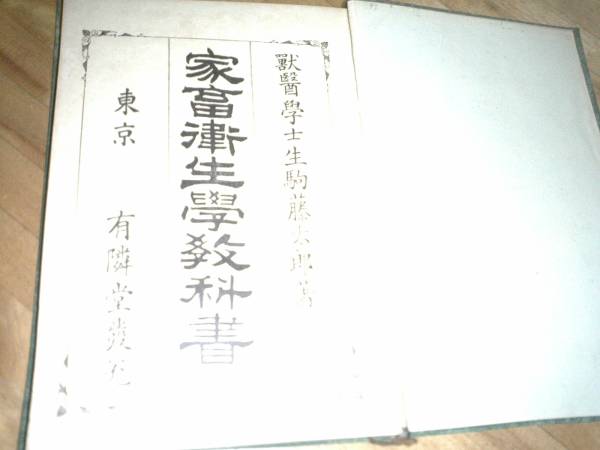 獸醫學士生駒藤太郎著
家畜衞生學敎科書
東京 有隣堂發兌